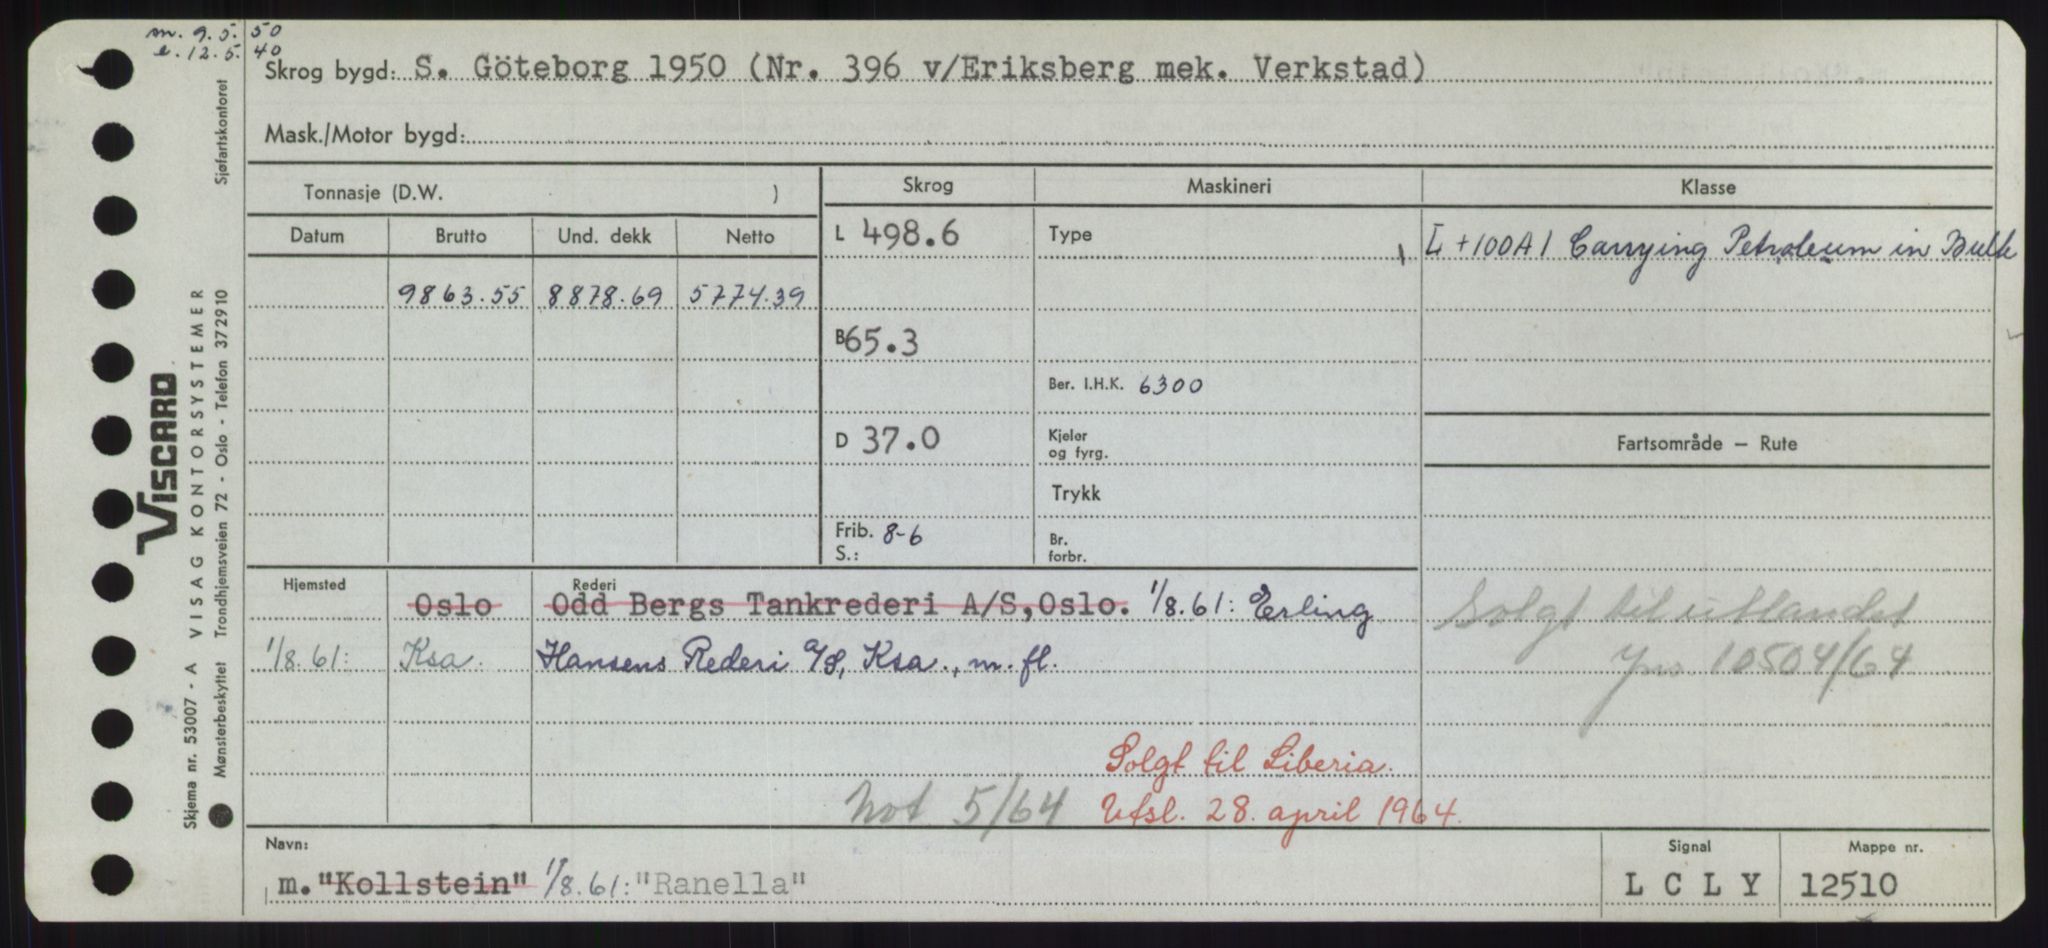 m. 9.5.50
e. 12.5.40
Skrog bygd: S. Göteborg 1950 (Nr. 396 v/Eriksberg mek. Verkstad)
Mask./Motor bygd:
Tonnasje (D.W. )
Skrog
Maskineri
Klasse
Datum Brutto Und. dekk Netto
L 498.6
Type
[ +100A1 Carrying Petroleum in Bulk
9863.55 8878.69 5774.39
B 65.3
Ber. I.H.K. 6300
D 37.0
Kjeler
og fyrg.
Fartsområde – Rute
Trykk
Frib. 8-6
S.:
Br.
forbr.
Hjemsted
Rederi
Oslo Odd Bergs Tankrederi A/S, Oslo. 1/8.61: Erling
Solgt til utlandet
1/8.61: Ksa. Hansens Rederi A/S, Ksa., m.fl.
10504/64
Solgt til Liberia.
Not 5/64
Utsl. 28. april 1964.
Navn:
Signal
Mappe nr.
m. "Kollstein" 1/8.61: "Ranella"
L C L Y
12510
VISCARD
Skjema nr. 53007 - A VISAG KONTORSYSTEMER
Mønsterbeskyttet Trondhjemsveien 72 - Oslo - Telefon 372910
Sjøfartskontoret